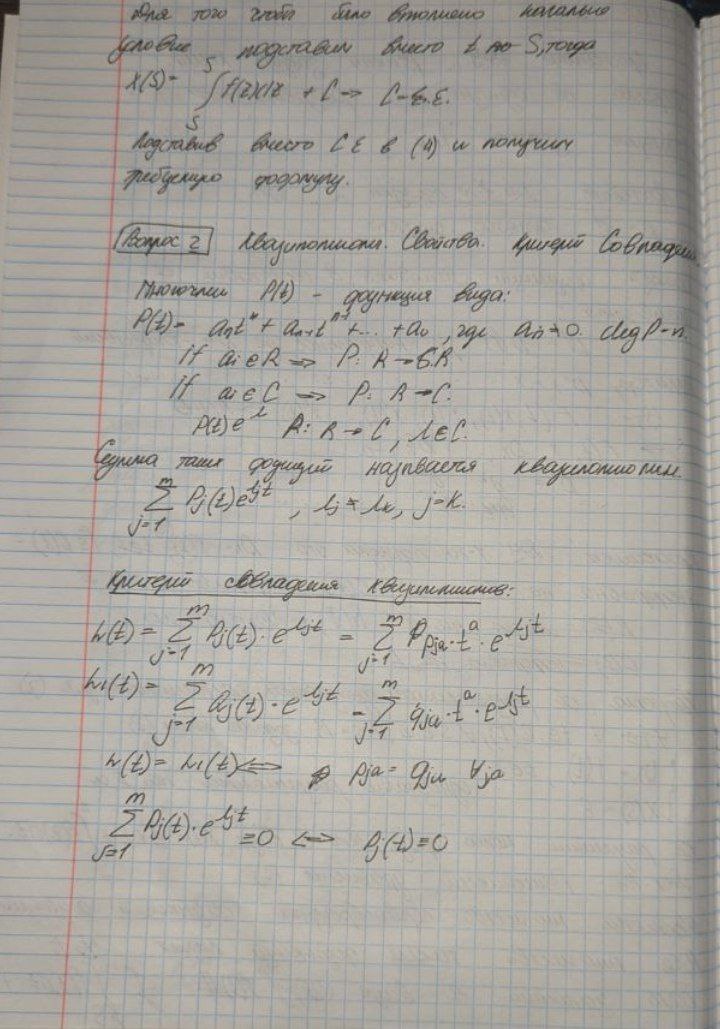 Для того чтобы было выполнено начально
условие подставим вместо t → S, тогда
X(S) = ∫ₛˢ f(τ)dτ + C ⇒ C = ξ.
Подставив вместо C ξ в (4) и получим
требуемую формулу.
Вопрос 2 Квазиполином. Свойства. Критерий Совпаден
Многочлен P(t) - функция вида:
P(t) = aₙtⁿ + aₙ₋₁tⁿ⁻¹ + ... + a₀, где aₙ ≠ 0. deg P = n.
if aᵢ ∈ R ⇒ P: R → R
if aᵢ ∈ C ⇒ P: R → C.
P(t)e^λ R: R → C, λ ∈ C.
Сумма таких функций называется квазиполином.
∑ⱼ₌₁ᵐ Pⱼ(t)e^λjt, λj ≠ λk, j = k.
Критерий совпадения квазиполиномов:
L(t) = ∑ⱼ₌₁ᵐ Pj(t) · e^λjt = ∑ⱼ₌₁ᵐ pja · tᵃ · e^λjt
L₁(t) = ∑ⱼ₌₁ᵐ Qj(t) · e^λjt = ∑ⱼ₌₁ᵐ qja · tᵃ · e^λjt
L(t) = L₁(t) ⇔ pja = qja ∀ja
∑ⱼ₌₁ᵐ Pj(t) · e^λjt ≡ 0 ⇔ Pj(t) ≡ 0